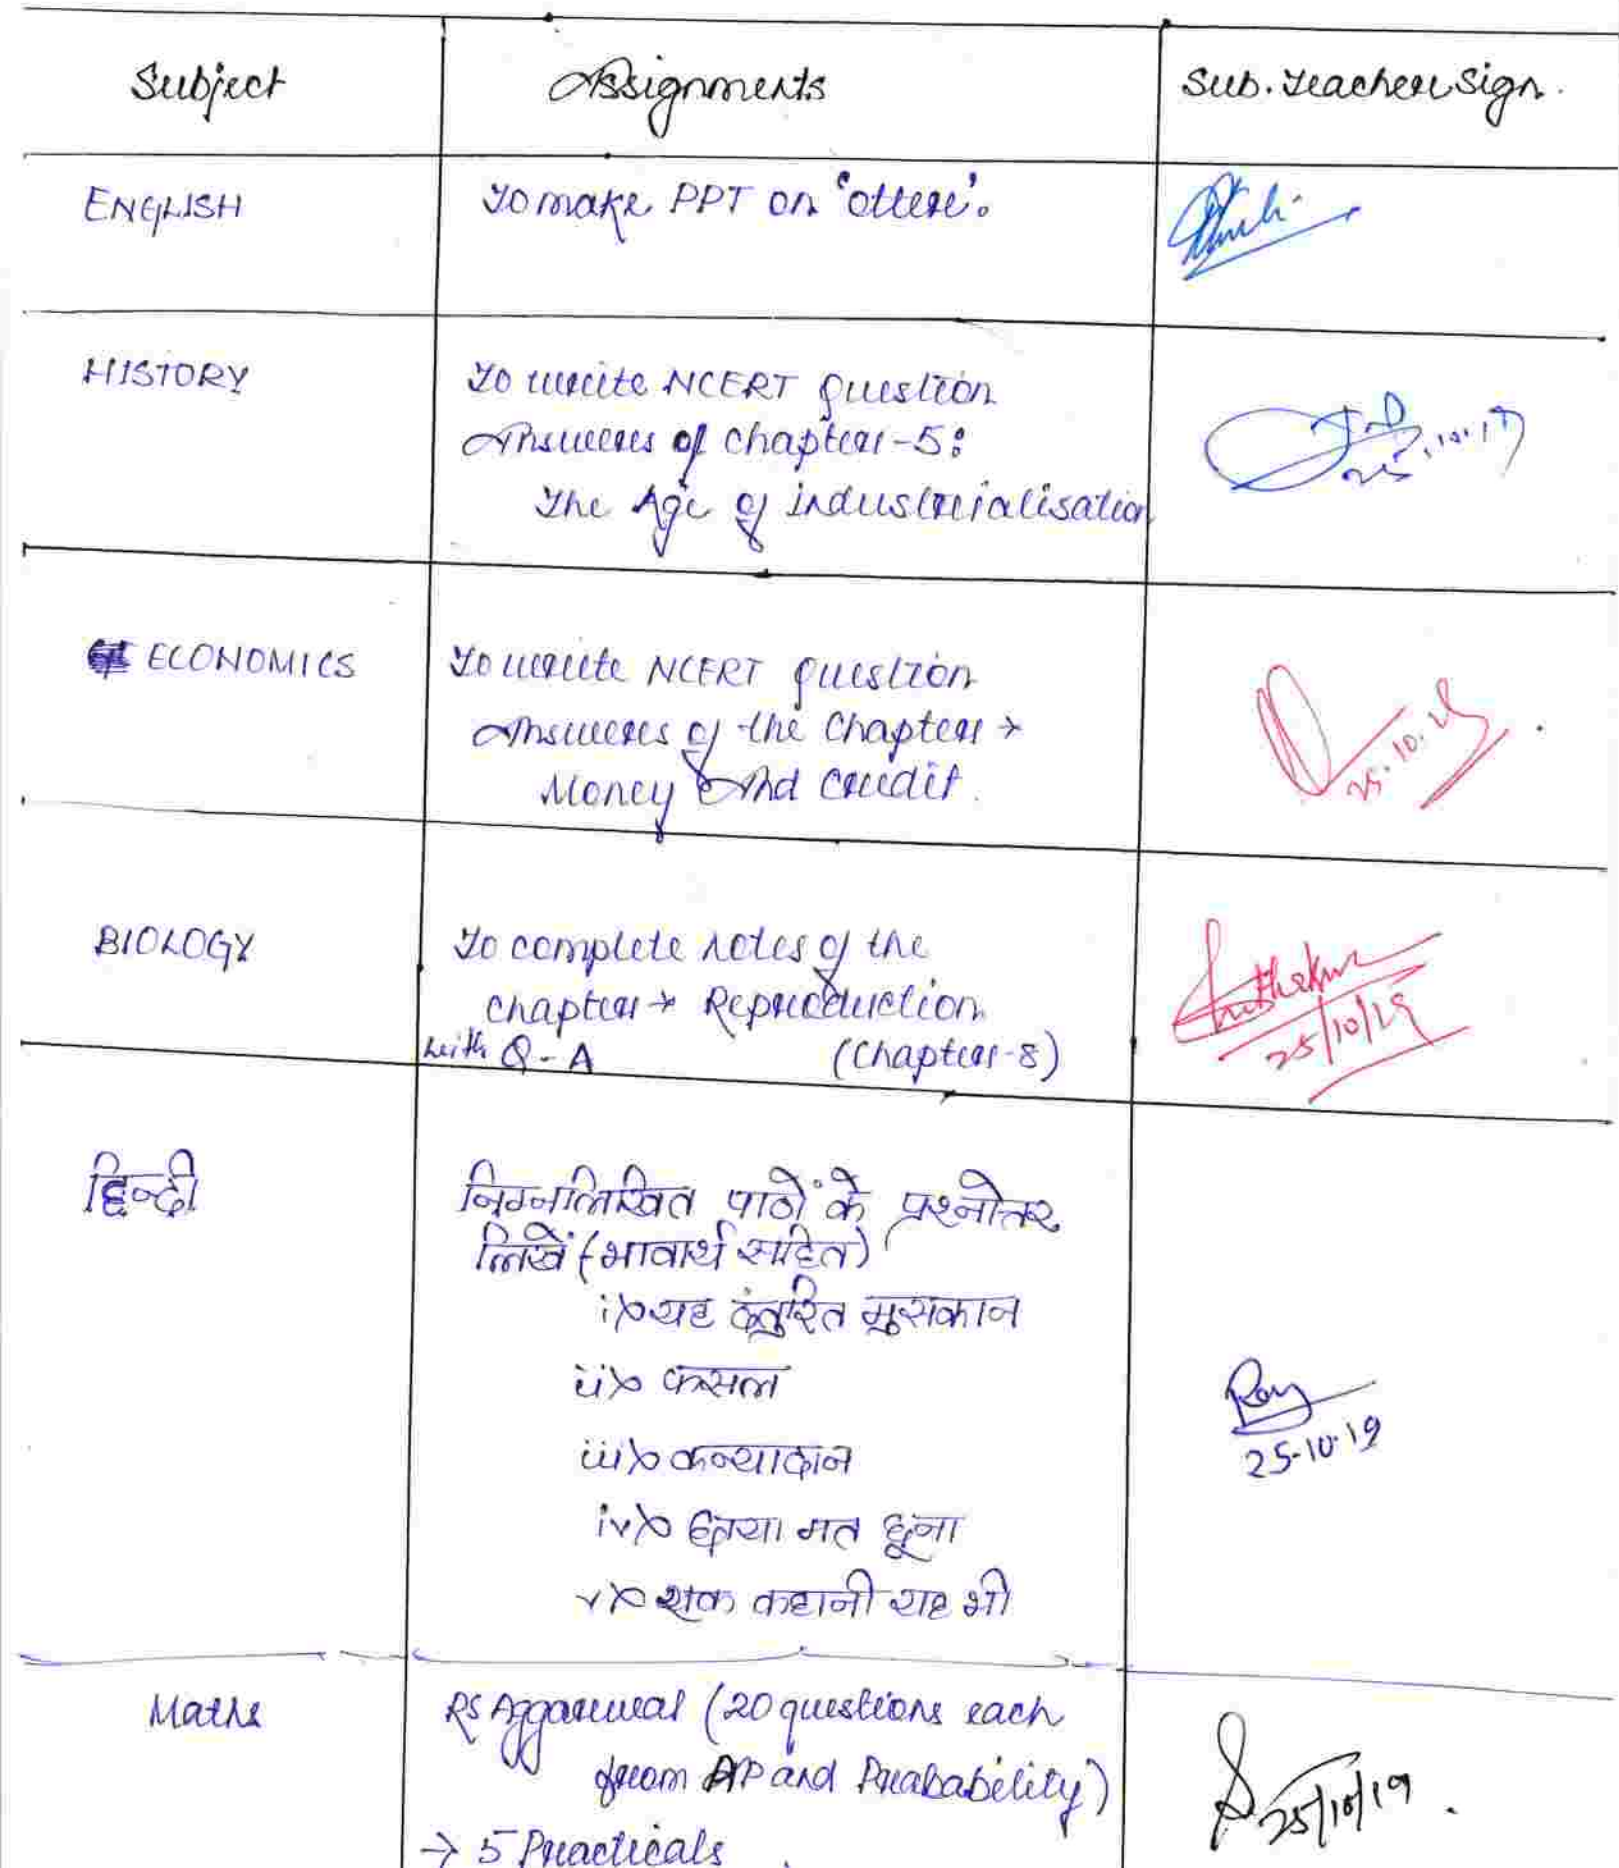 Subject Assignments Sub. Teacher Sign.
ENGLISH To make PPT on 'otter'.
HISTORY To write NCERT Question
Answers of chapter-5:
The Age of industrialisation
25.10.19
ECONOMICS To write NCERT Question
Answers of the Chapter →
Money and credit.
25.10.19
BIOLOGY To complete notes of the
chapter → Reproduction
with Q-A (Chapter-8)
25/10/19
हिन्दी निम्नलिखित पाठों के प्रश्नोत्तर
लिखें (भावार्थ सहित)
i) यह दंतुरित मुसकान
ii) फसल
iii) कन्यादान
iv) छाया मत छूना
v) एक कहानी यह भी
Ray
25-10-19
Maths RS Aggarwal (20 questions each
from AP and Prabability)
25/10/19.
→ 5 Practicals